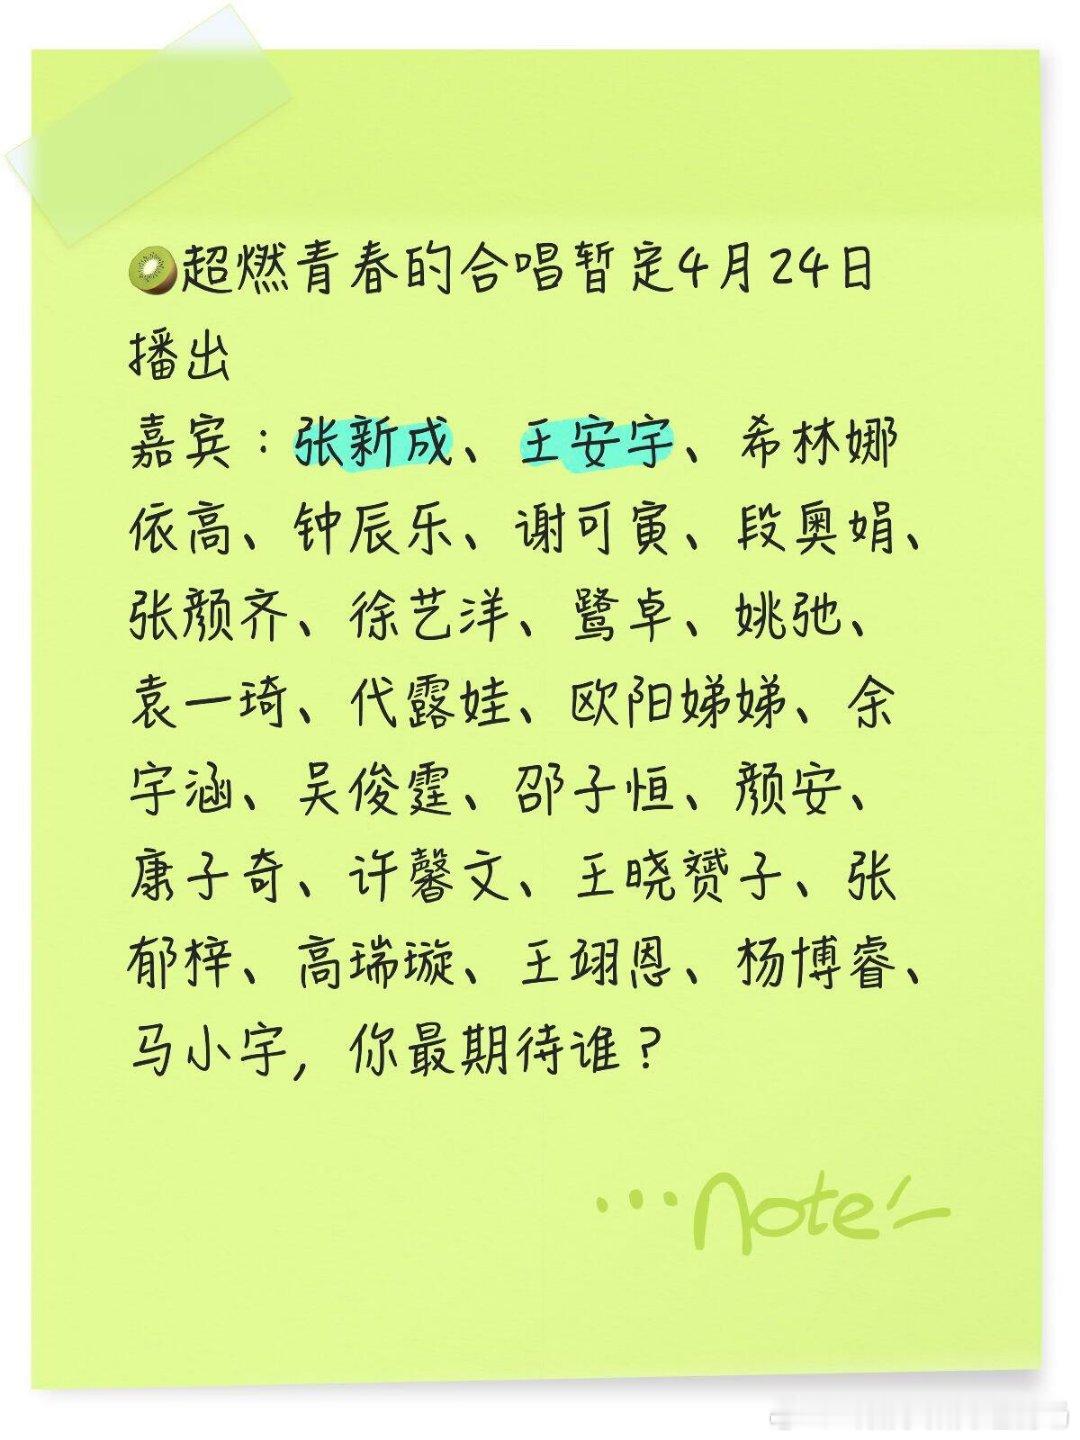 🥝超燃青春的合唱暂定4月24日
播出
嘉宾：张新成、王安宇、希林娜
依高、钟辰乐、谢可寅、段奥娟、
张颜齐、徐艺洋、鹭卓、姚弛、
袁一琦、代露娃、欧阳娣娣、余
宇涵、吴俊霆、邵子恒、颜安、
康子奇、许馨文、王晓赟子、张
郁梓、高瑞璇、王翊恩、杨博睿、
马小宇，你最期待谁？
...note